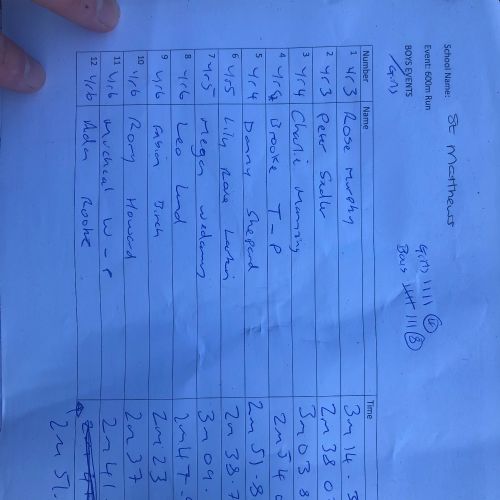 School Name: St Matthews
Event: 600m Run
BOYS EVENTS / Girls
Girls IIII (4)
Boys IIII III (8)
Number Name Time
1 Yr3 Rose Murphy 3m14.3
2 Yr3 Peter Sadler 2m38.0
3 Yr4 Charlie Manning 3m03.8
4 Yr4 Brooke T-P 2m54.
5 Yr4 Danny Shepard 2m51.8
6 Yr5 Lily Rose 2m38.7
7 Yr5 Megan 3m09.
8 Yr6 Leo Lund 2m47.
9 Yr6 Fabian Birch 2m23
10 Yr6 Rory Howard 2m37
11 Yr6 Micheal W-P 2m41
12 Yr6 Aiden Rooke 2m51.